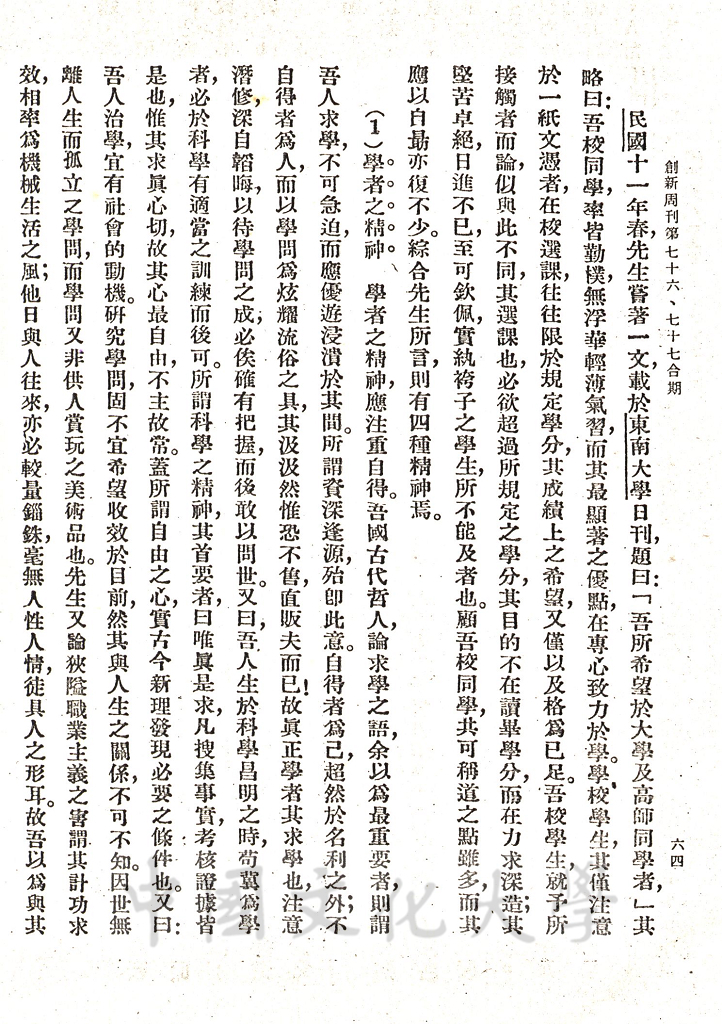 創新周刊第七十六、七十七合期
六四
民國十一年春，先生嘗著一文，載於東南大學日刊，題曰：「吾所希望於大學及高師同學者，」其
略曰：吾校同學，率皆勤樸，無浮華輕薄氣習，而其最顯著之優點，在專心致力於學。學校學生，其僅注意
於一紙文憑者，在校選課，往往限於規定學分，其成績上之希望，又僅以及格為已足。吾校學生，就予所
接觸者而論，似與此不同，其選課也，必欲超過所規定之學分，其目的不在讀畢學分，而在力求深造；其
堅苦卓絕，日進不已，至可欽佩，實紈袴子之學生，所不能及者也。顧吾校同學，其可稱道之點雖多，而其
應以自勗亦復不少。綜合先生所言，則有四種精神焉。
（1）學者之精神、　學者之精神，應注重自得。吾國古代哲人，論求學之語，余以為最重要者，則謂
吾人求學，不可急迫，而應優遊浸漬於其間。所謂資深逢源，殆卽此意。自得者為己，超然於名利之外；不
自得者為人，而以學問為炫耀流俗之具，其汲汲然惟恐不售，直販夫而已！故眞正學者，其求學也，注意
潛修，深自韜晦，以待學問之成；必俟確有把握，而後敢以問世。又曰，吾人生於科學昌明之時，苟冀為學
者，必於科學有適當之訓練而後可。所謂科學之精神，其首要者，曰唯眞是求，凡搜集事實，考核證據皆
是也，惟其求眞心切，故其心最自由，不主故常。蓋所謂自由之心，實古今新理發現必要之條件也。又曰：
吾人治學，宜有社會的動機。研究學問，固不宜希望收效於目前，然其與人生之關係，不可不知。因世無
離人生而孤立之學問，而學問又非供人賞玩之美術品也。先生又論狹隘職業主義之害，謂其計功求
效，相率為機械生活之風；他日與人往來，亦必較量錙銖，毫無人性人情，徒具人之形耳。故吾以為與其
中國文化大學